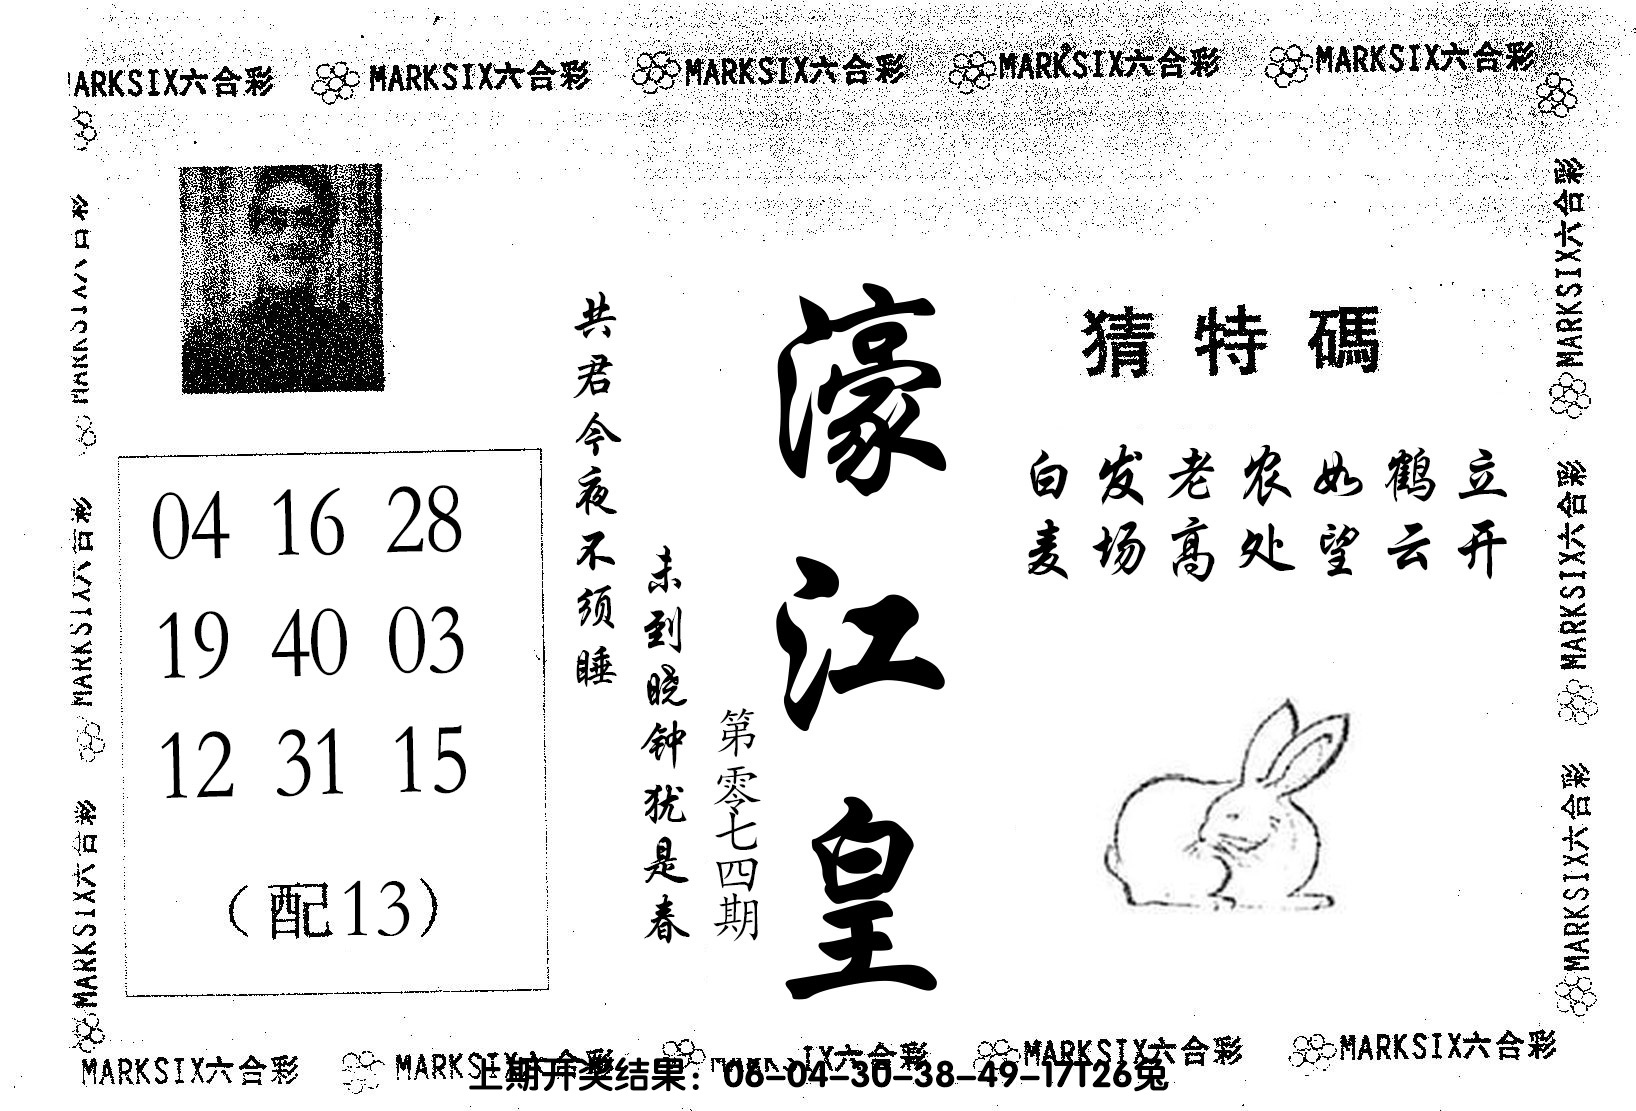 MARKSIX六合彩 MARKSIX六合彩 MARKSIX六合彩 MARKSIX六合彩 MARKSIX六合彩
MARKSIX六合彩
MARKSIX六合彩
MARKSIX六合彩
04 16 28
19 40 03
12 31 15
(配13)
共君今夜不须睡
未到晓钟犹是春
第零七四期
濠江皇
猜特碼
白发老农如鹤立
麦场高处望云开
MARKSIX六合彩
MARKSIX六合彩
MARKSIX六合彩
MARKSIX六合彩 MARKSIX六合彩 六合彩 MARKSIX六合彩 MARKSIX六合彩
上期开奖结果：06-04-30-38-49-17T26兔